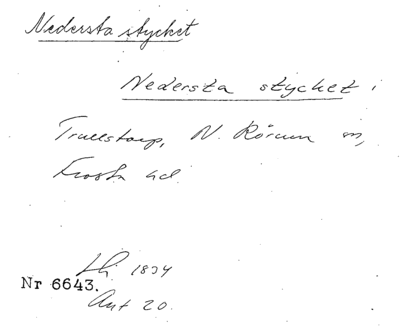 Nedersta stycket
Nedersta stycket i
Trulstorp, N. Rörum sn,
Frosta hd.
Lh 1834
Nr 6643.
Akt 20.